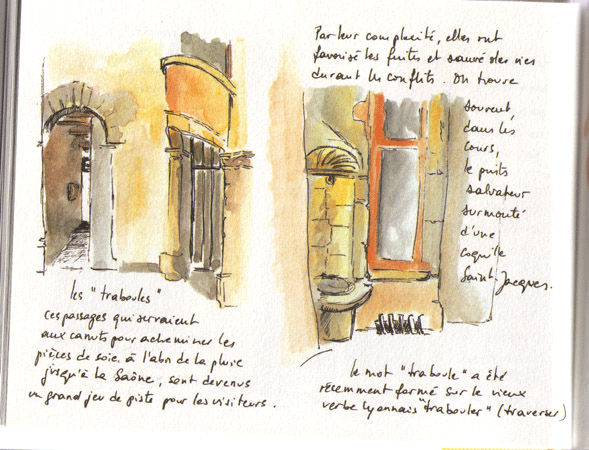 les "traboules"
ces passages qui servaient
aux canuts pour acheminer les
pièces de soie, à l'abri de la pluie
jusqu'à la Saône, sont devenus
un grand jeu de piste pour les visiteurs.
Par leur complicité, elles ont
favorisé les fuites et sauvé des vies
durant les conflits. On trouve
souvent,
dans les
cours,
le puits
salvateur
surmonté
d'une
coquille
Saint Jacques.
le mot "traboule" a été
récemment formé sur le vieux
verbe lyonnais "trabouler" (traverser)